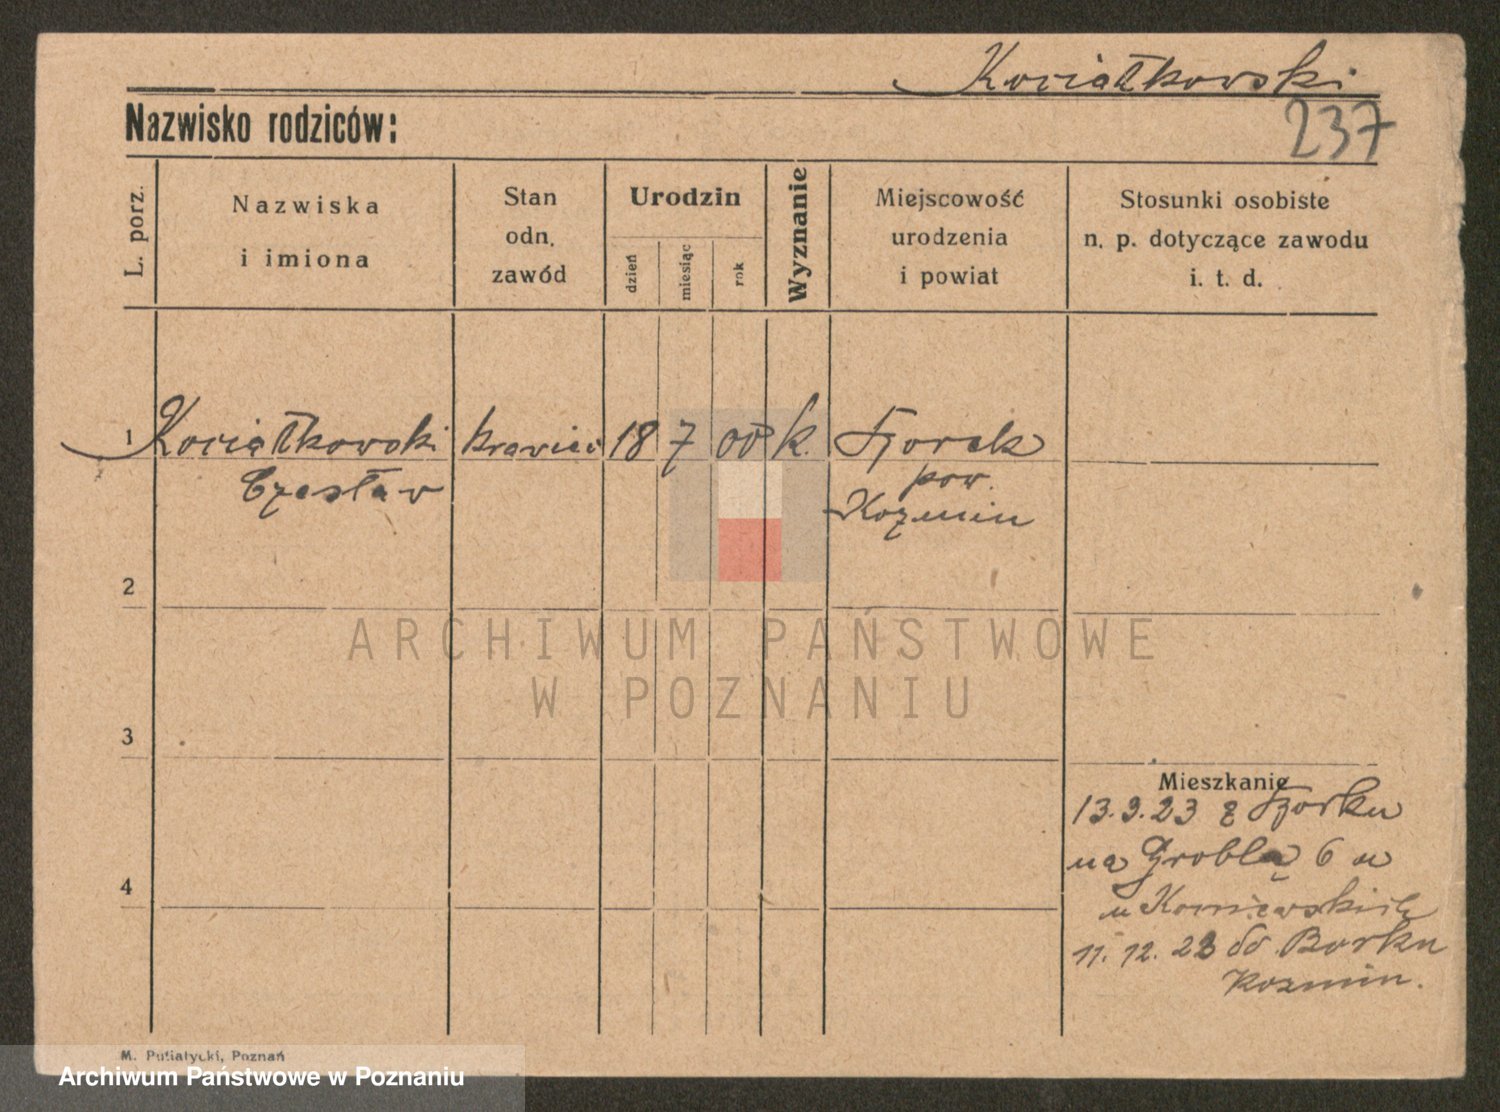 Kociałkowski
Nazwisko rodziców:
237
L. porz.
Nazwiska
i imiona
Stan
odn.
zawód
Urodzin
dzień
miesiąc
rok
Wyznanie
Miejscowość
urodzenia
i powiat
Stosunki osobiste
n. p. dotyczące zawodu
i. t. d.
1 Kociałkowski krawiec 18 7 00 k.
Czesław
pow.
Kozmin
2
ARCHIWUM PAŃSTWOWE
W POZNANIU
3
Mieszkanie
13.9.23 z
na Groblą 6
u
11. 12. 23 do Borku
Kozmin.
4
M. Putiatycki, Poznań
Archiwum Państwowe w Poznaniu